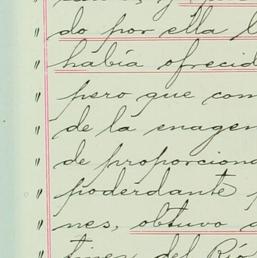 do por ella l
había ofrecid
pero que com
de la enagen
de proporciona
poderdante
nes, obtuvo
tines del Río